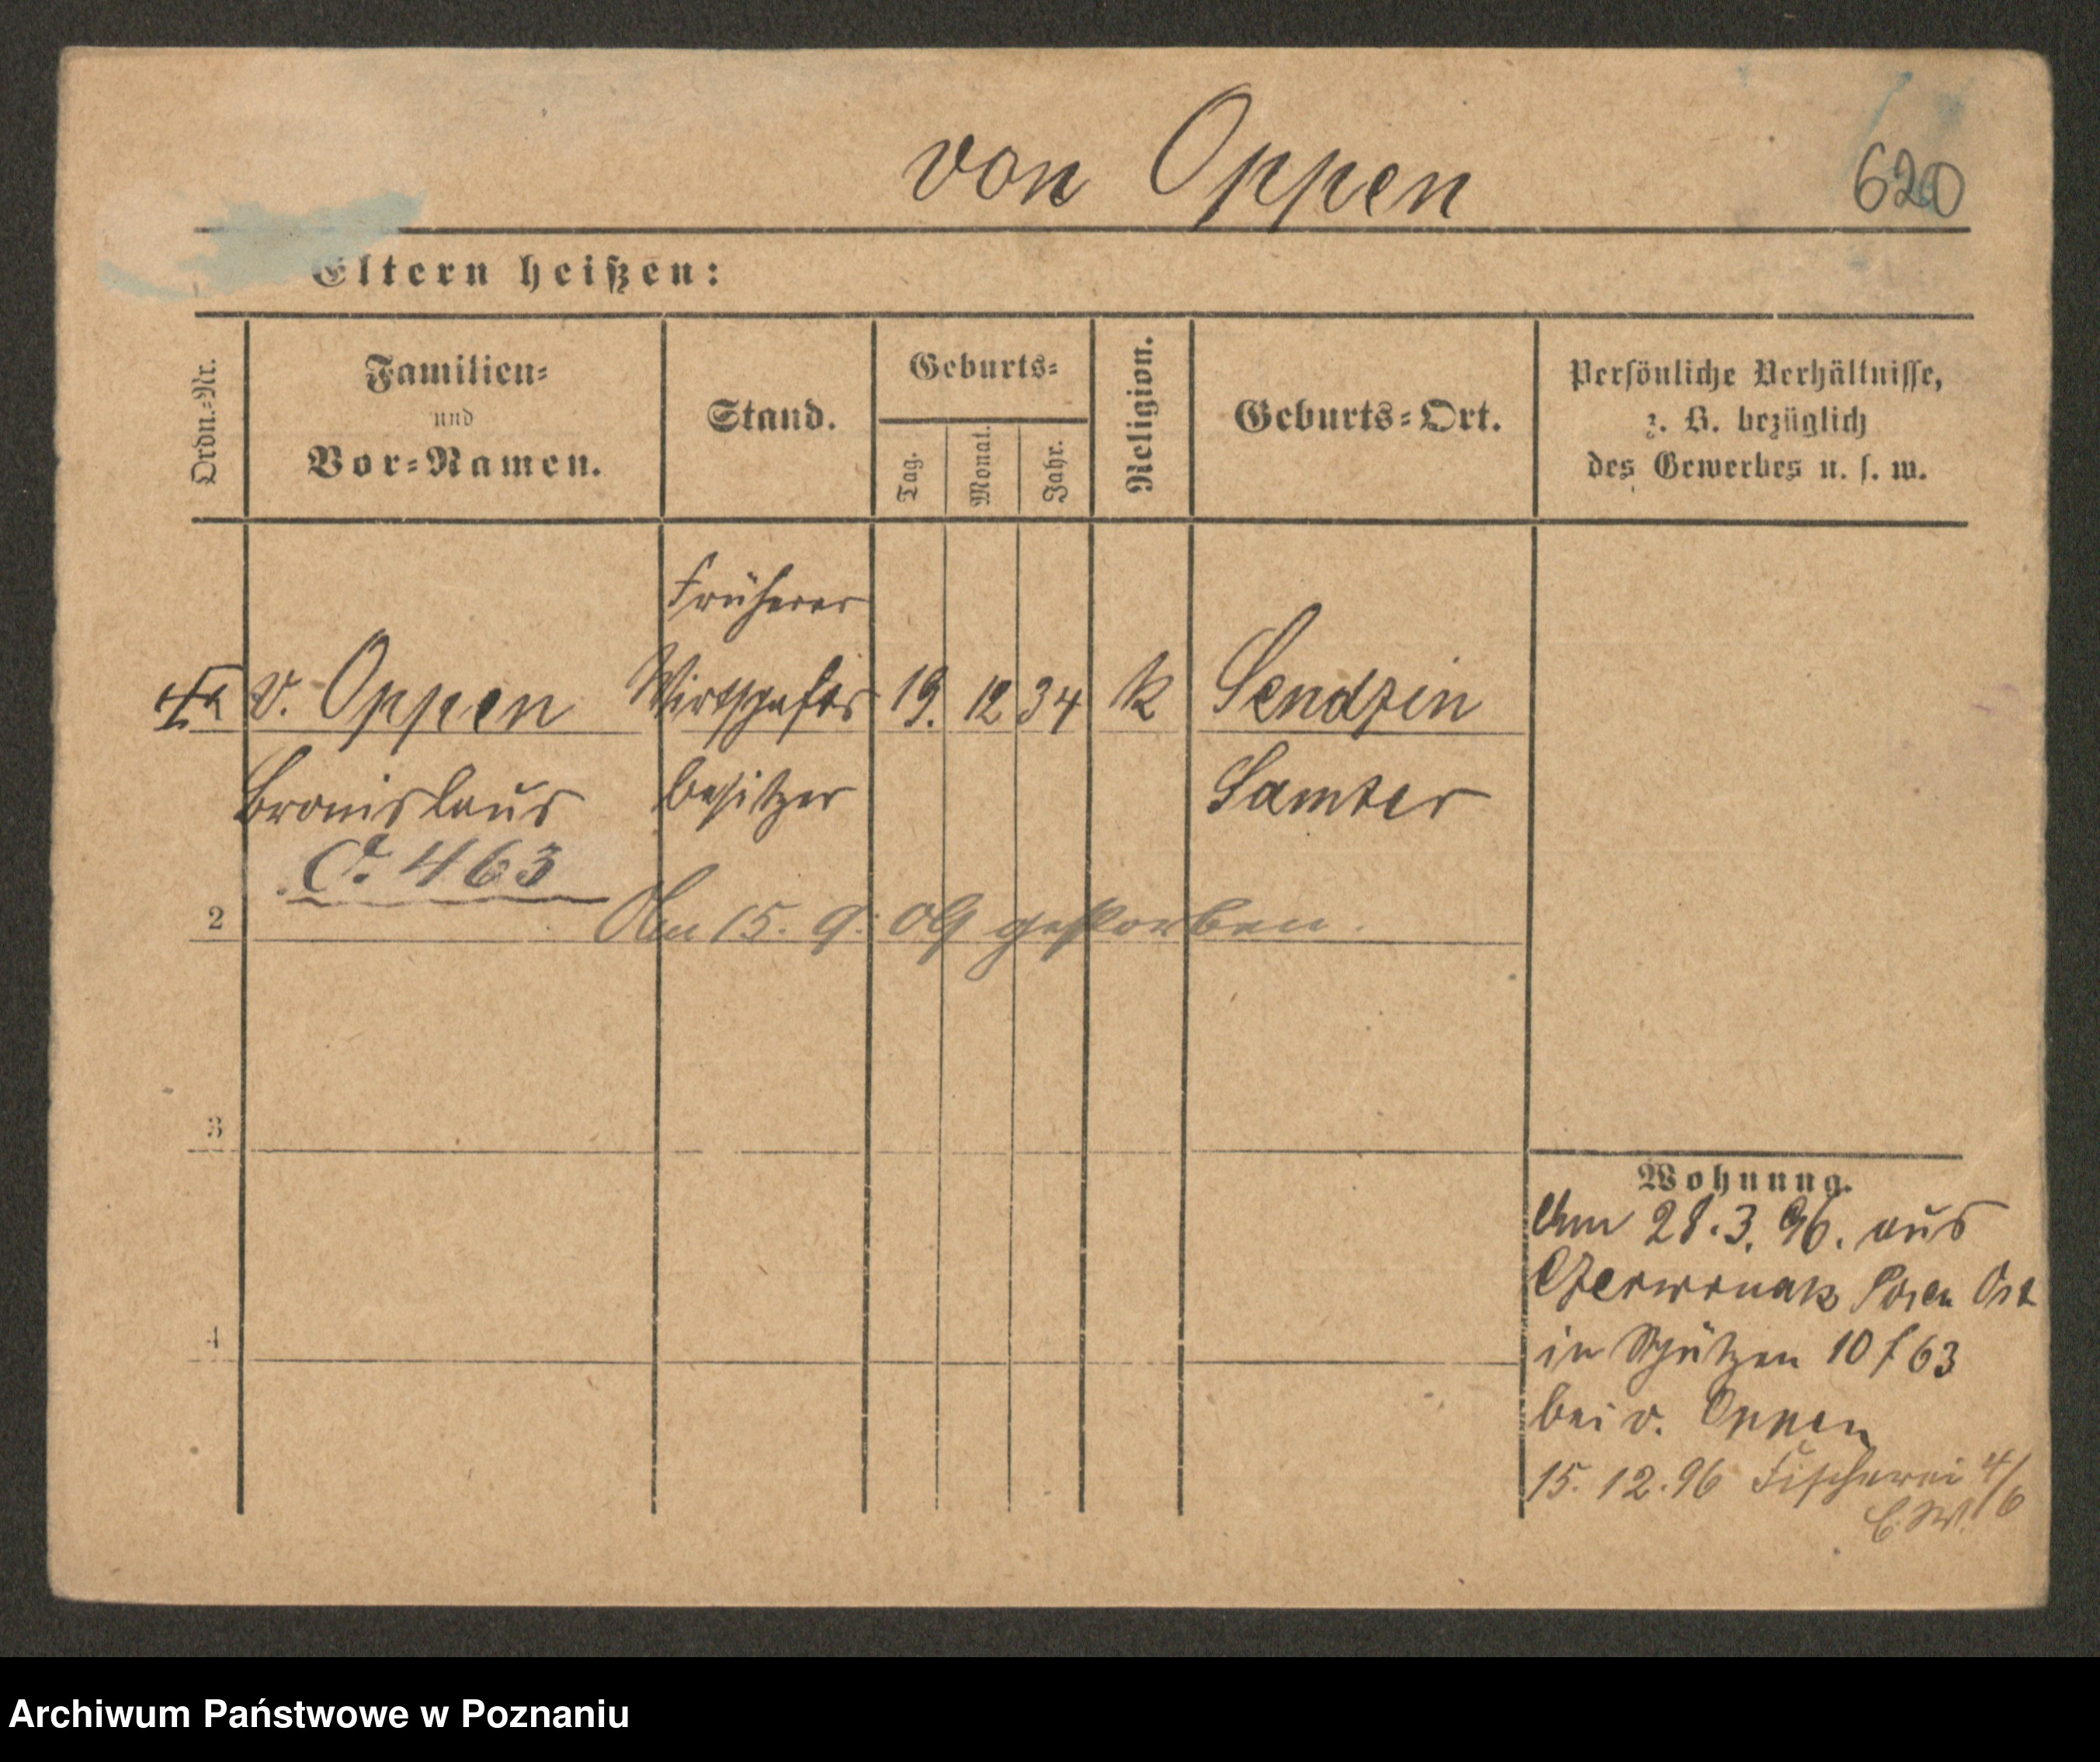 von Oppen
620
Eltern heißen:
Ordn.-Nr.
Familien-
und
Vor-Namen.
Stand.
Geburts-
Tag.
Monat.
Jahr.
Religion.
Geburts-Ort.
Persönliche Verhältnisse,
z. B. bezüglich
des Gewerbes u. s. w.
v. Oppen
Bronislaus
463
Früherer
Wirthschafts
besitzer
19. 12 34
k
Sendzin
Samter
2
Am 15. 9. 09 gestorben.
3
4
Wohnung.
Am 28. 3. 96. aus
Czerwonak Posen Ost
in Schützen 10 f 63
bei v. Oppen
15. 12. 96 Fischerei 4/6
Archiwum Państwowe w Poznaniu